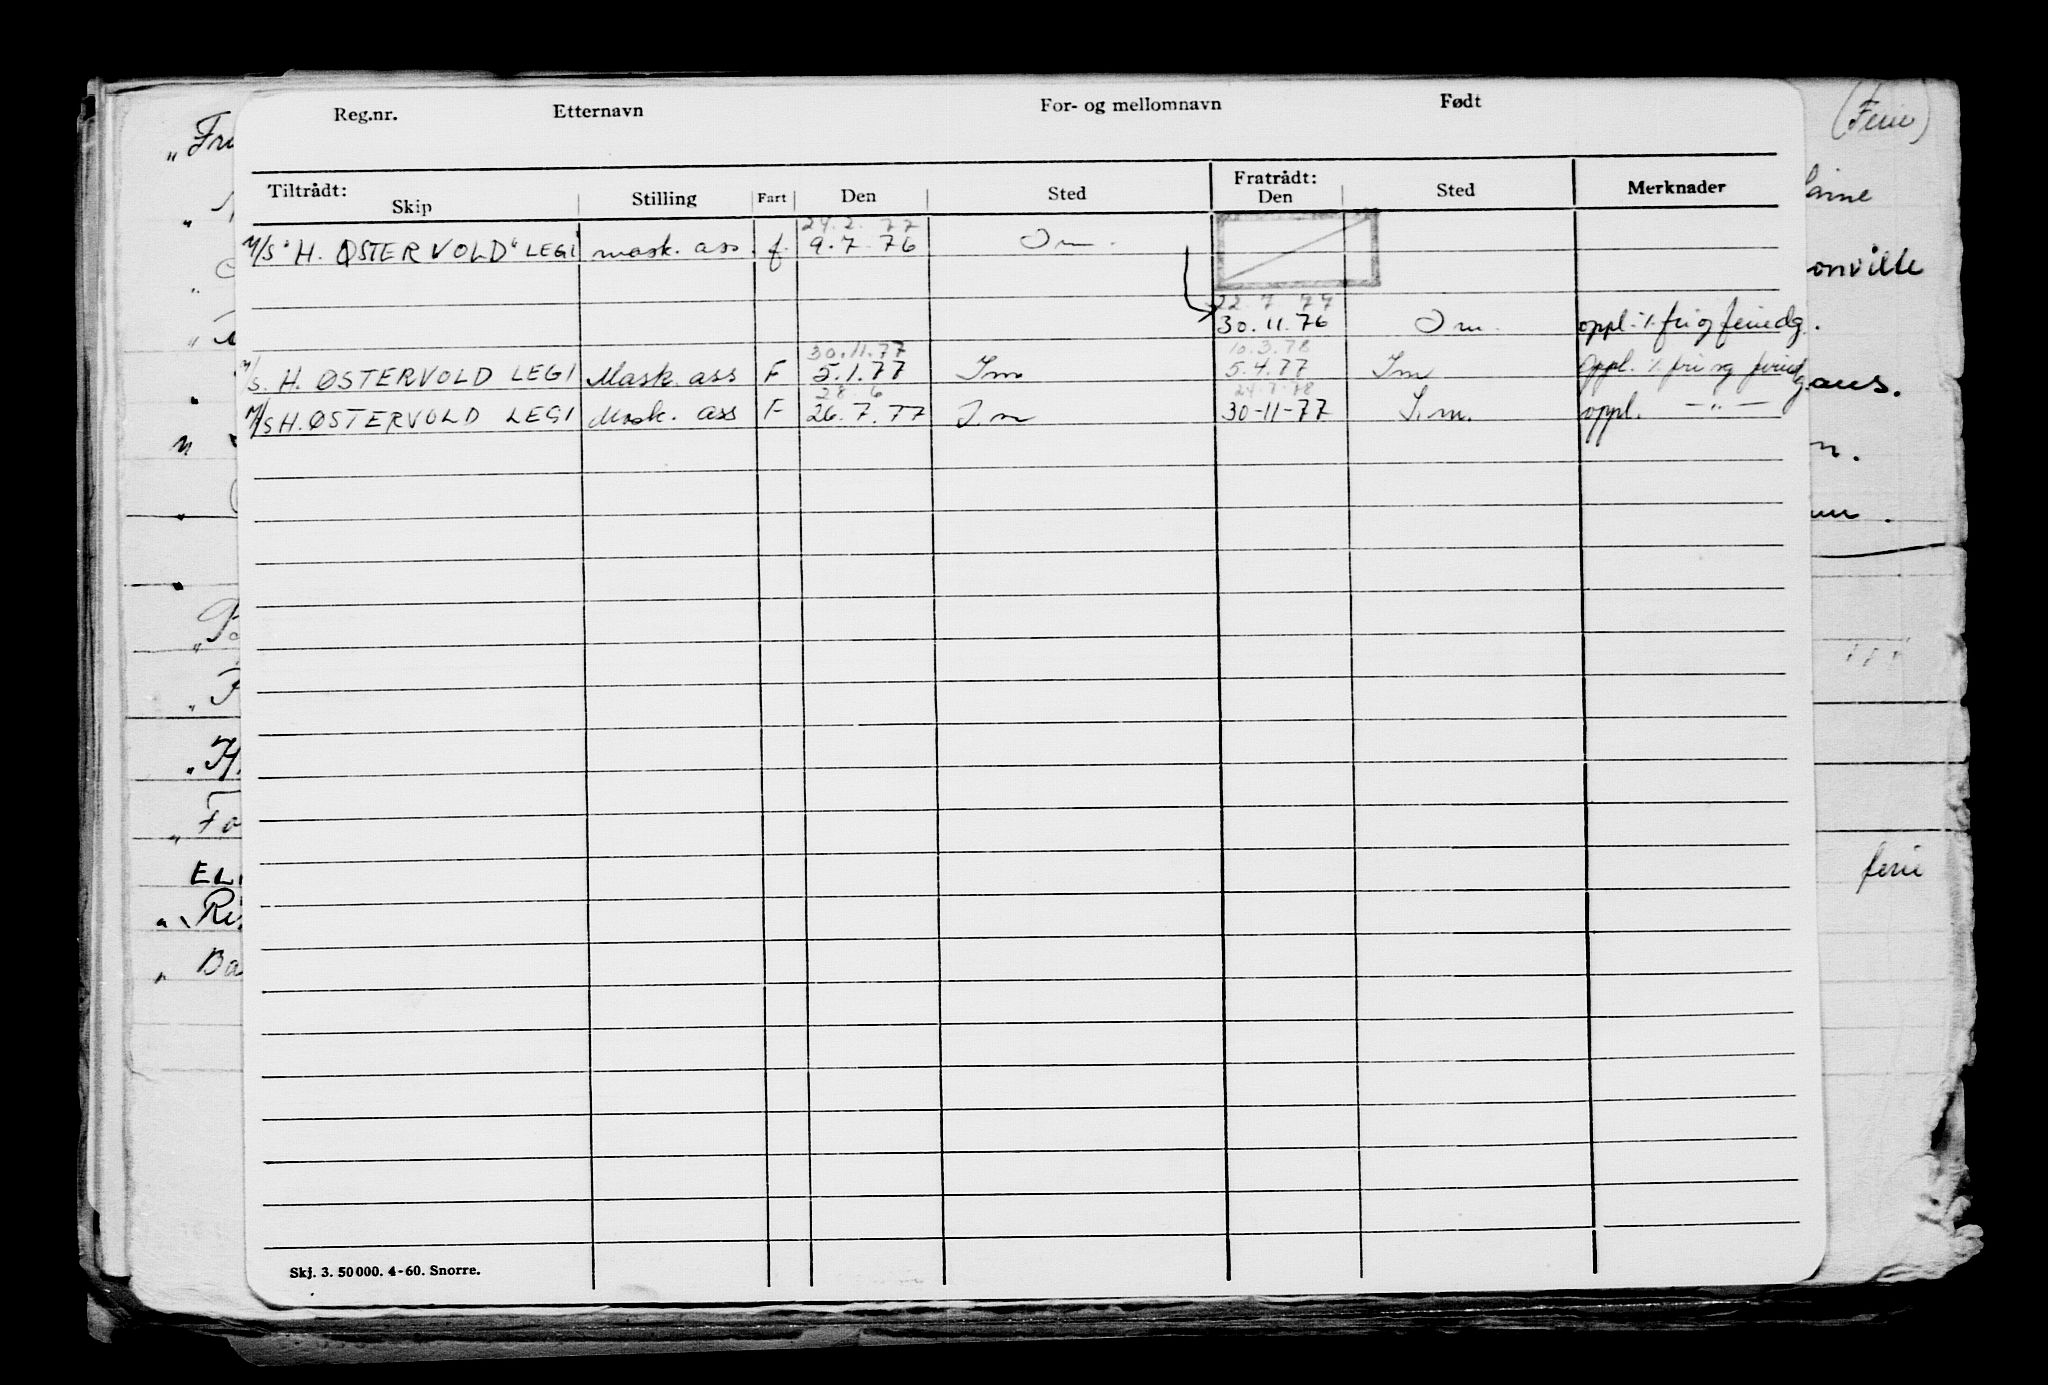 Reg.nr. Etternavn For- og mellomnavn Født (Ferie)
Tiltrådt: Fratrådt:
Skip Stilling Fart Den Sted Den Sted Merknader
24.2.77
M/S "H. ØSTERVOLD" LEGI mask. ass f 9.7.76 Im.
22.7.77
30.11.76 Im. oppl. % fri og feriedg.
30.11.77 10.3.78
M/S. H. ØSTERVOLD LEGI Mask. ass F 5.1.77 Im 5.4.77 Im Oppl. % fri og feried
28.6 24.7.78
M/S H. ØSTERVOLD LEGI Mask. ass F 26.7.77 I.m 30-11-77 I.m. oppl. —"—
ferie
Skj. 3. 50 000. 4-60. Snorre.